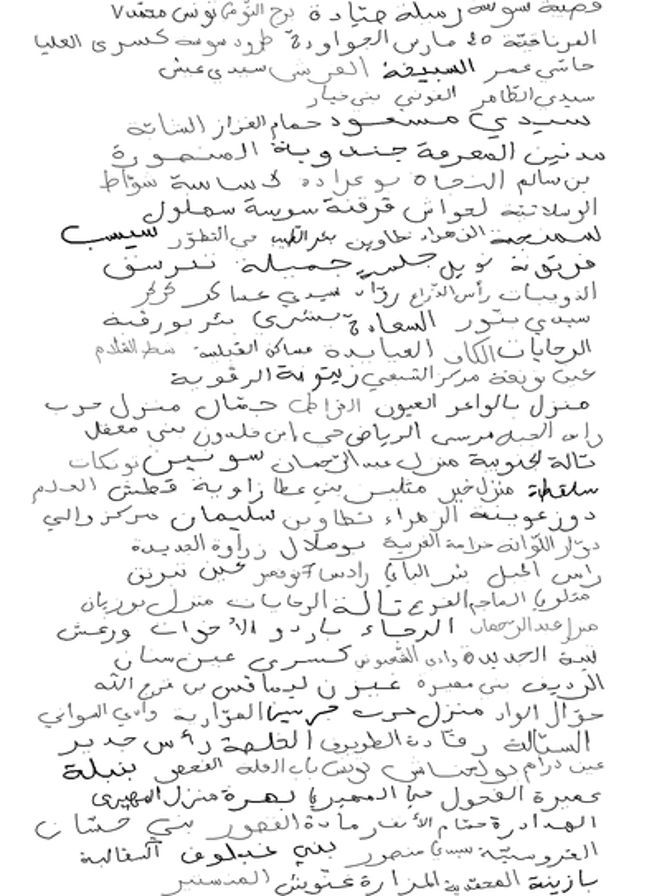 قصيبة سوسة رسلة حيادة برج التومي تونس
الفرناختة 20 مارس الجواودة طرود سوسة كسرى العليا
حاسي عمر السبيخة العرش سيدي عيش
سيدي الظاهر الفوني بني خيار
سيدي مسعود حمام الغزاز الشابة
مدنين المعرفة جندوبة المنصورة
بن سالم النجاة بو عرادة كساسة شواط
الوسلاتية لعواش قرقنة سوسة سهلول
الزهراء تطاوين بئر الطيب حي التطور سيسب
فريقونة نوبل جلسي جميلة تبرسق
الذويبات رأس الذراع رواد سيدي عساكر كركر
سيدي بنور السعادة بشرى بئر بورقبة
الرحايات الكاف العبايدة مساكن القبلية
عين بوبعة مركز الشبعي زيتونة الرقوبة
منزل بالواعر العيون القراطي جمال منزل حرب
راس الجبل مرسى الرياض حي ابن خلدون بني معقل
تالة الجنوبية منزل عبد الرحمان سونين نونكات
سلقطة منزل خير مثلين بني عطا زاوية قطش العذم
دوز عوينة الزهراء تطاوين سليمان مركز والي
دوار اللواتة خزامة الغربية بوصلال زراوة الجديدة
راس الجبل بئر الباي رادس نوفمبر عين تبرنق
متلوي الماجم الفرع تالة الرحايات منزل بوزيان
منزل عبد الرحمان الرجاء باردو الأخوات ورغش
نبة الجديدة وادي كسرى عين سنان
الرديف بني مغيرة غيزن ليماقس بن فرج الله
حوال الواد منزل حرب الهوارية وادي السواني
السيالة رقادة الطويرف القلعة رأس جدير
عين درام بو لحناش تونس باب القلة الفحص بنبلة
عميرة الفحول حي المهيري بهرة منزل المهيري
الهدادرة حمام الأنف رمادة القصور بني حسان
الفروسية سيدي منصور بني غيلوف السقالبة
بازينة المحمدية المزارة غنوش المنستير